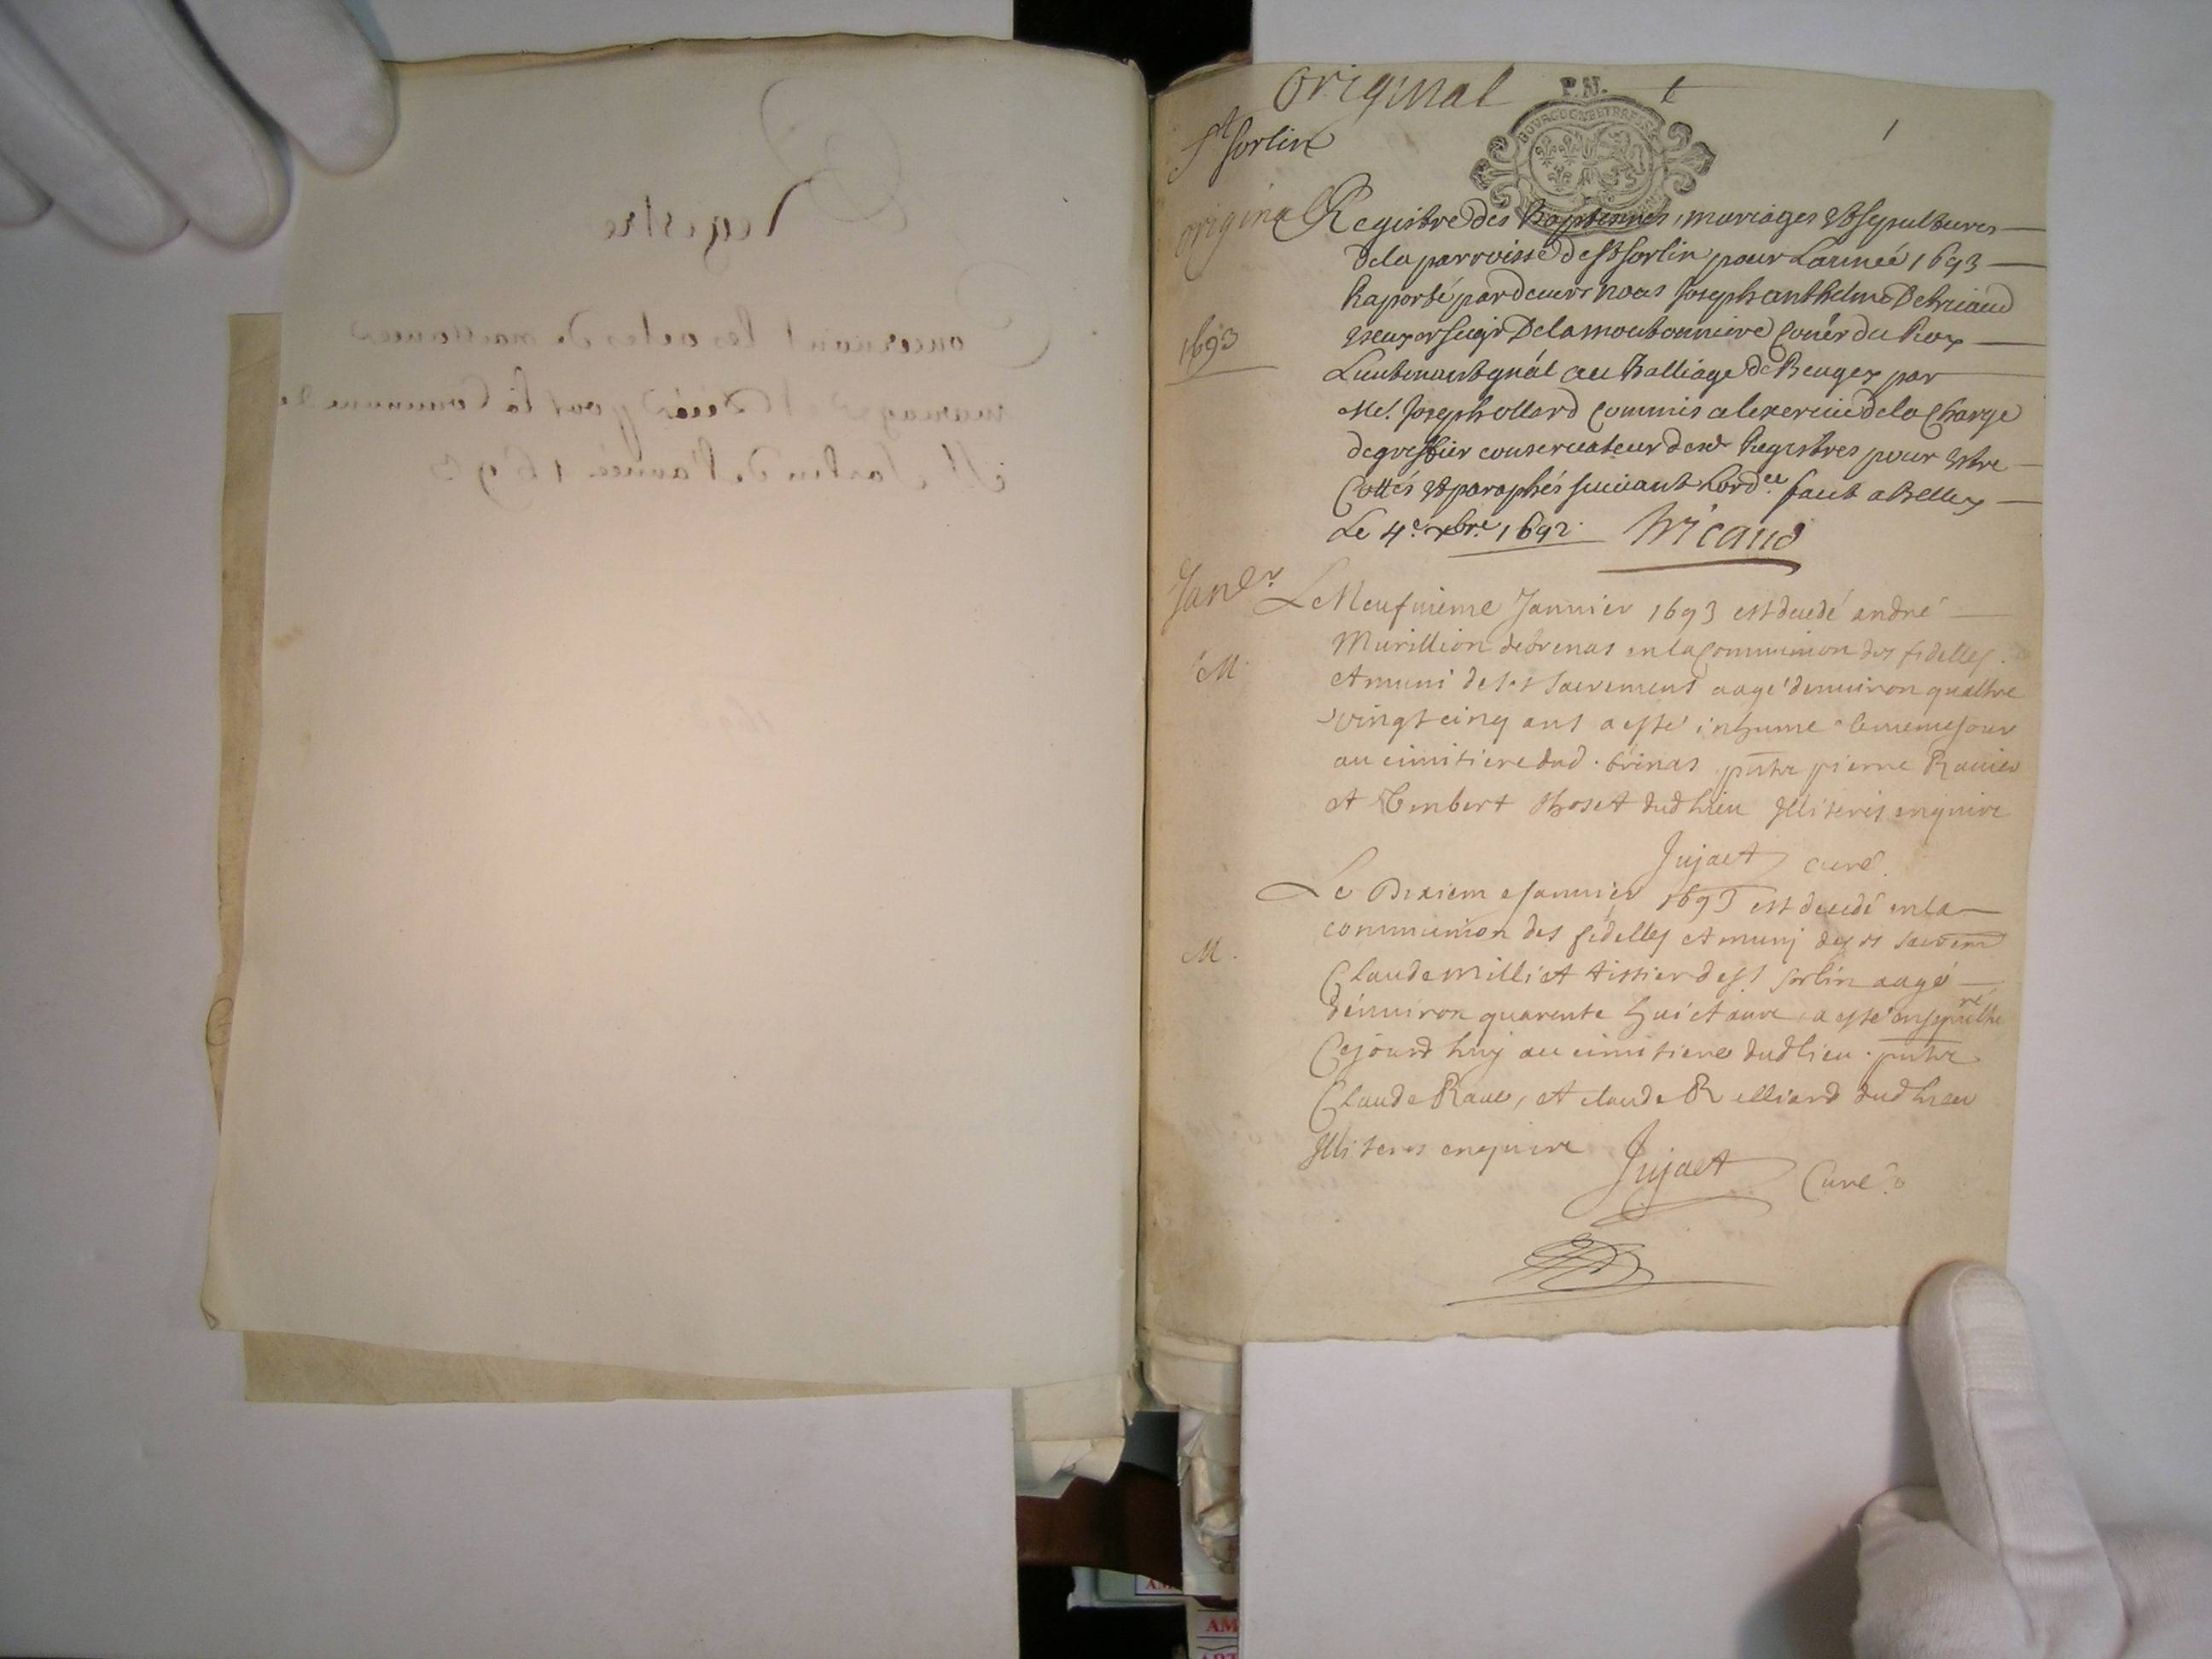 Registre
Concernant les actes de naissances
mariages et Décès pour la Commune de
St Sorlin de l'année 1693
Original
P.N.
1
St Sorlin
BOURGOGNE ET BRESSE
original
Registre des Baptesmes, mariages et sepultures
de la parroisse de St Sorlin pour Lannée 1693
Raporté pardeuant nous Joseph anthelme
1693
Conér du Roy
Lieutenant gnál au Balliage de Beugey par
Me. Joseph ollard Commis a lexercice de la Charge
de greffier conservateur desd Registres pour estre
Cottés et paraphés suiuant Lord.ce fait a Belley
Le 4.e xbre. 1692. Tricaud
Janer
Le Neufuieme Januier 1693 est decedé andré
Murillion de brenas en la Communion des fidelles
M.
et muni des sts sacrements aagé denuiron quattre
vingt cinq ans a esté inhume le meme jour
au cimitiere dud. brénas pnts pierre Rauier
et dud lieu Illiterés enquire
Jujaet curé.
Le Dixieme Januier 1693 est decedé en la
communion des fidelles et munj des sts sacrem
M.
Claude Milliet tissier de St Sorlin aagé
dénuiron quarente huict ans, a esté ensepulturé
Cejourdhuy au cimitiere dud lieu. pnts
Claude Raue, et claude Relliard dud lieu
Illiterés enquire Jujaet Curé.